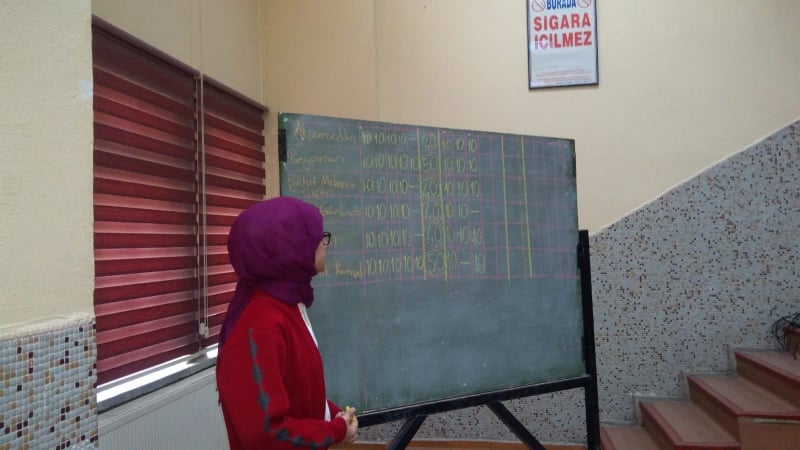 BURADA
SİGARA
İÇİLMEZ
Akşemseddin 10 10 10 10 – 40 10 10 10
Beypınarı 10 10 10 10 10 50 10 10 10
Şehit Mehmet 10 10 10 10 – 40 10 10 10
10 10 10 10 – 40 10 10 –
10 10 10 10 – 40 10 10 10
Kemal 10 10 10 10 10 50 10 – 10